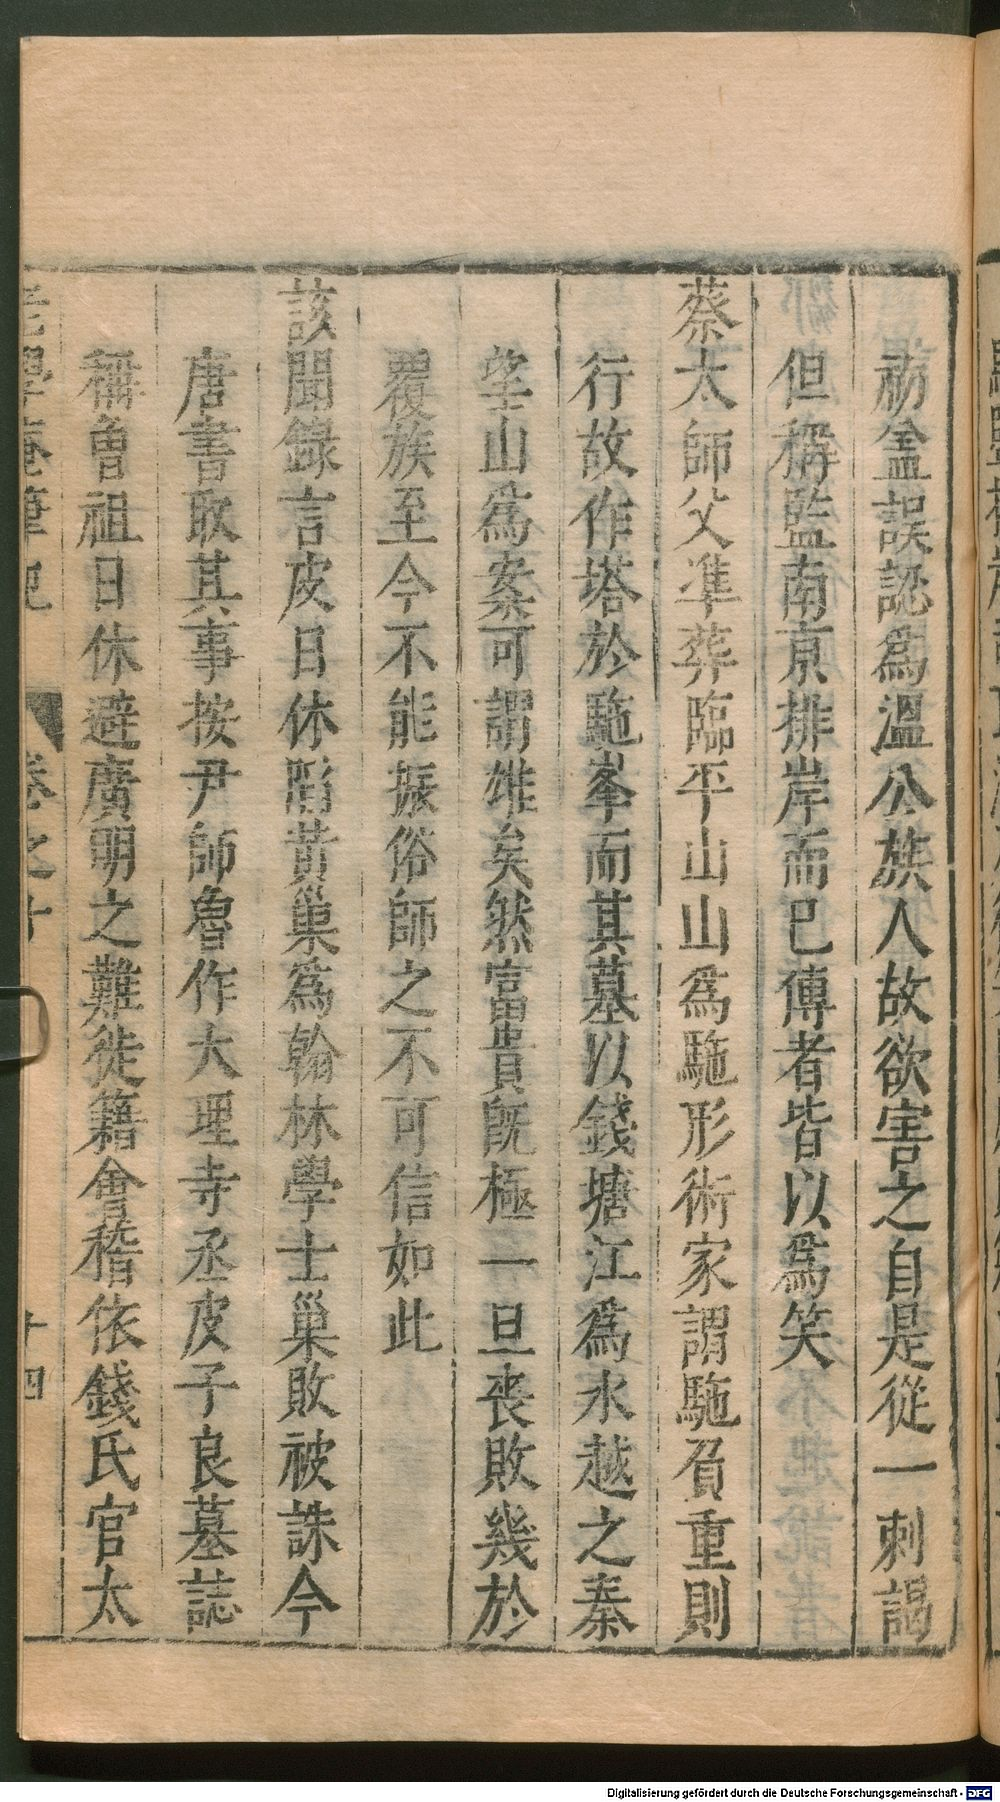 礽盆誤認爲溫公族人故欲害之自是從一刺謁
但稱監南京排岸而已傳者皆以爲笑
蔡太師父凖葬臨平山山爲駞形術家謂駞負重則
行故作塔於駞峯而其墓以錢塘江爲水越之秦
望山爲案可謂雄矣然富貴旣極一旦喪敗幾於
覆族至今不能振俗師之不可信如此
該聞錄言皮日休陷黃巢爲翰林學士巢敗被誅今
唐書取其事按尹師魯作大理寺丞皮子良墓誌
稱曾祖日休避廣明之難徙籍會稽依錢氏官太
老學庵筆記 卷之十 十四
Digitalisierung gefördert durch die Deutsche Forschungsgemeinschaft - DFG